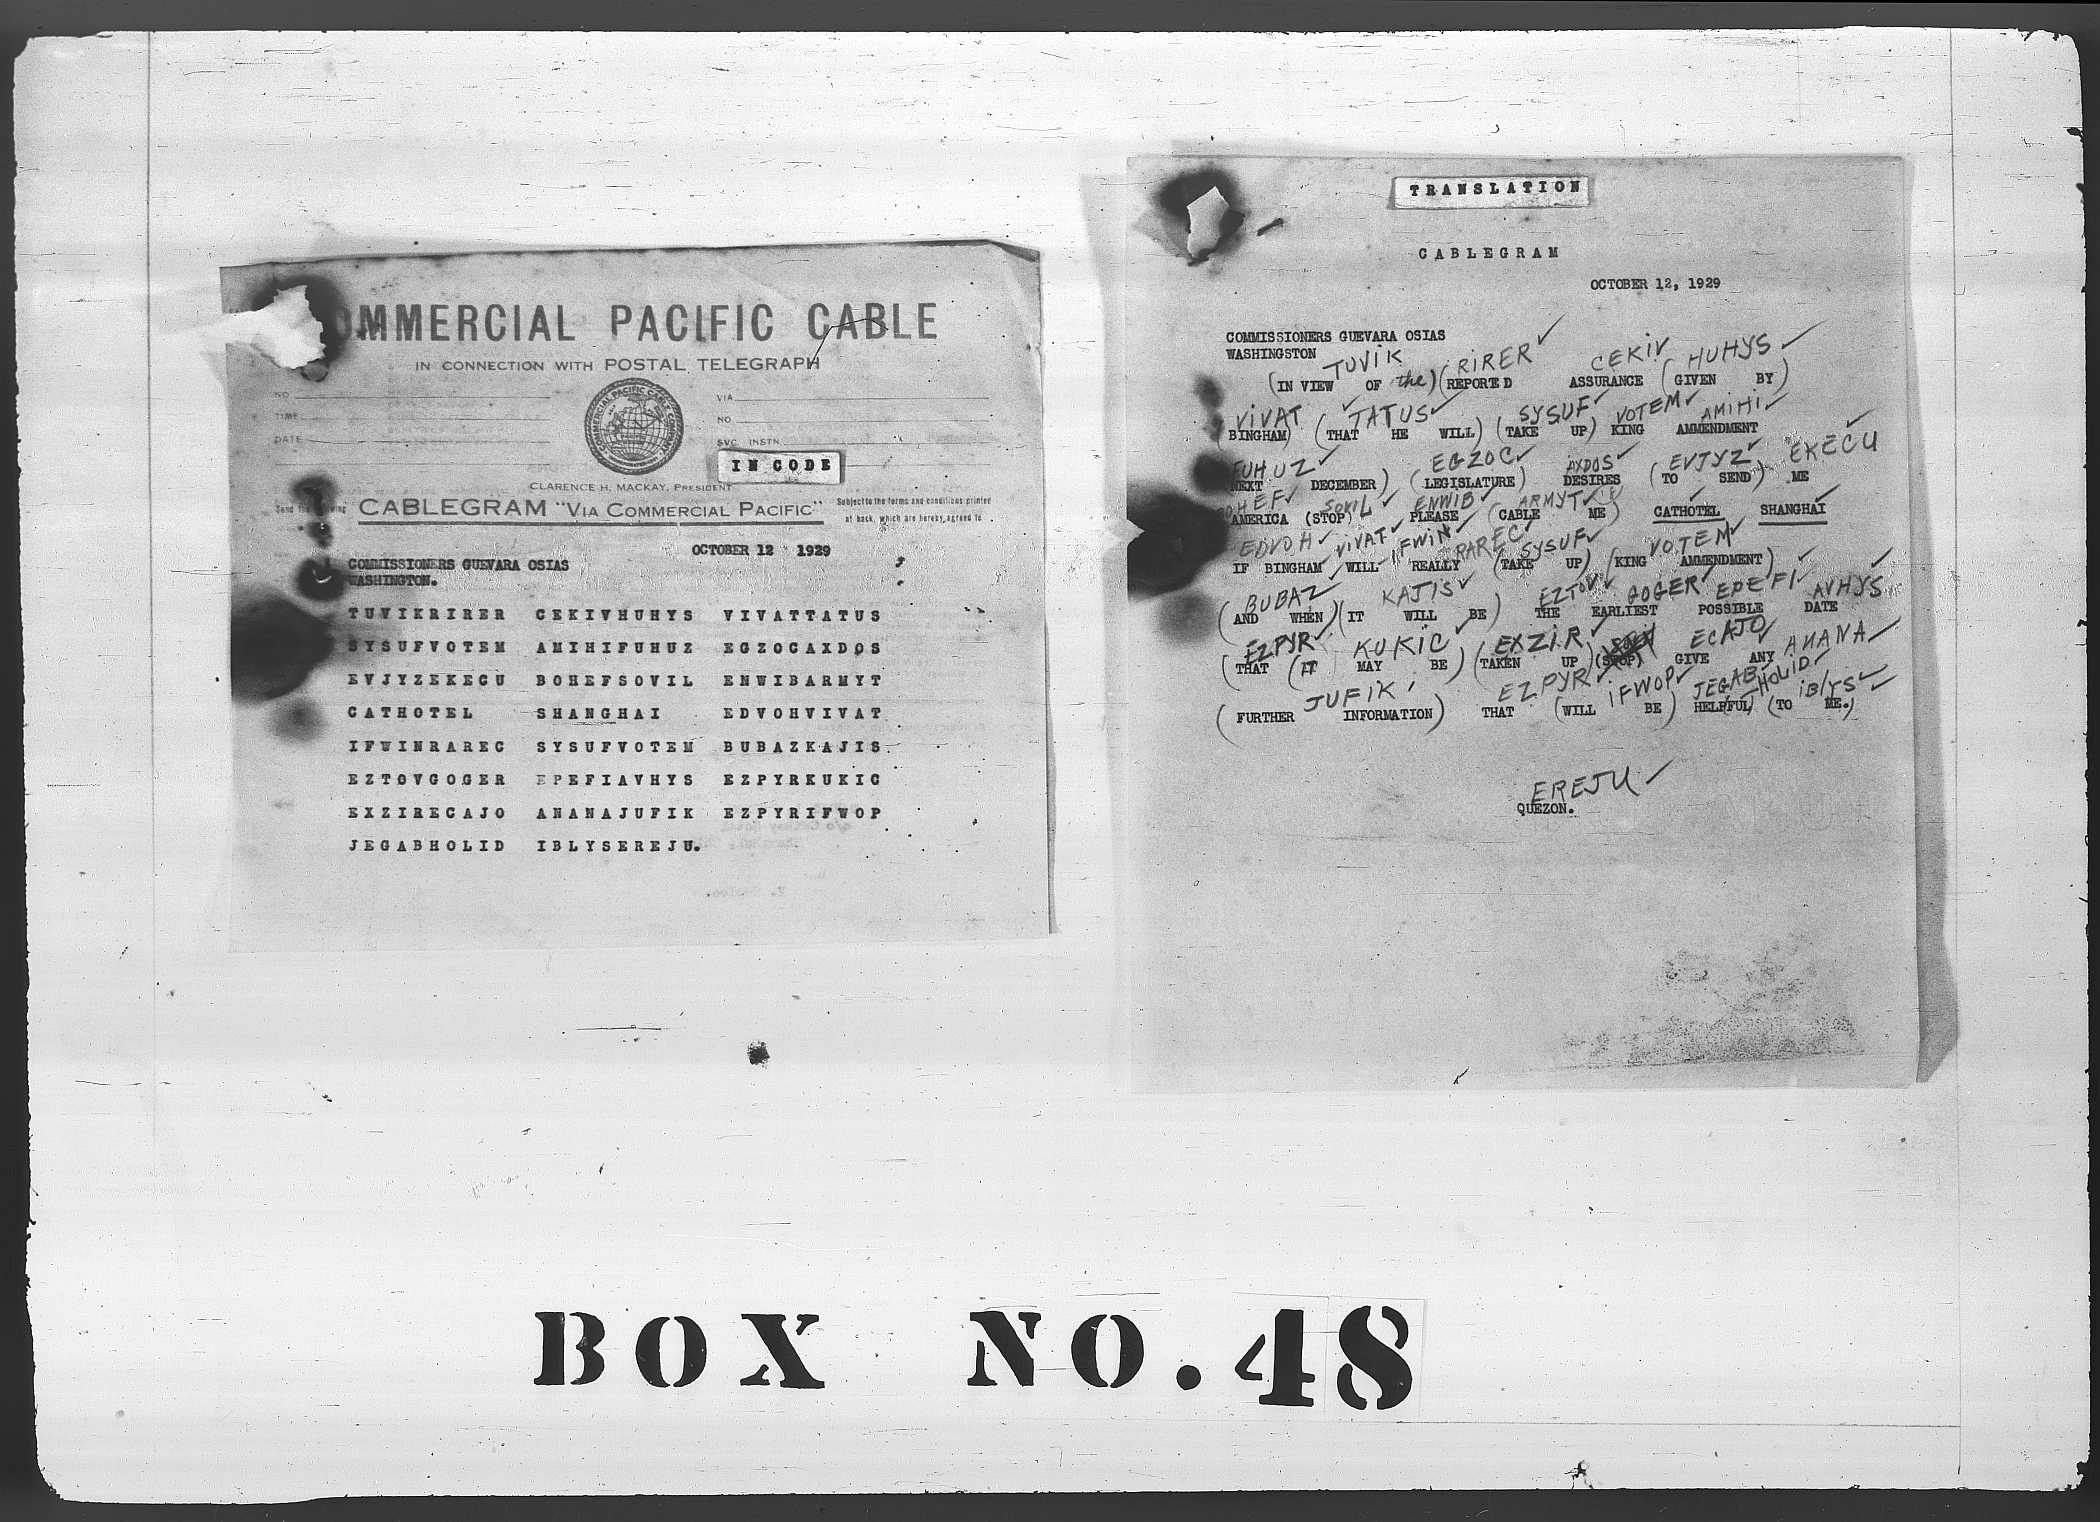 COMMERCIAL PACIFIC CABLE
IN CONNECTION WITH POSTAL TELEGRAPH
COMMERCIAL PACIFIC CABLE COMPANY
NO
TIME
DATE
VIA
NO
SVC. INSTN.
IN CODE
CLARENCE H. MACKAY, PRESIDENT
Send the following
CABLEGRAM "VIA COMMERCIAL PACIFIC"
Subject to the terms and conditions printed
at back, which are hereby agreed to
OCTOBER 12 1929
COMMISSIONERS GUEVARA OSIAS
WASHINGTON.
TUVIKRIRER CEKIVHUHYS VIVATTATUS
SYSUFVOTEM AMIHIFUHUZ EGZOCAXDOS
EVJYZEKECU BOHEFSOVIL ENWIBARMYT
CATHOTEL SHANGHAI EDVOHVIVAT
IFWINRAREC SYSUFVOTEM BUBAZKAJIS
EZTOVGOGER EPEFIAVHYS EZPYRKUKIC
EXZIRECAJO ANANAJUFIK EZPYRIFWOP
JEGABHOLID IBLYSEREJU.
TRANSLATION
CABLEGRAM
OCTOBER 12, 1929
COMMISSIONERS GUEVARA OSIAS
WASHINGSTON
TUVIK RIRER CEKIV HUHYS
(IN VIEW OF the) (REPORTED ASSURANCE (GIVEN BY)
VIVAT TATUS SYSUF VOTEM AMIHI
(BINGHAM) (THAT HE WILL) (TAKE UP) KING AMMENDMENT
FUHUZ EGZOC AXDOS EVJYZ EKECU
NEXT DECEMBER) (LEGISLATURE) DESIRES (TO SEND) ME
BOHEF SOVIL ENWIB ARMYT
AMERICA (STOP) PLEASE (CABLE ME) CATHOTEL SHANGHAI
EDVOH VIVAT IFWIN RAREC SYSUF VOTEM
IF BINGHAM WILL REALLY (TAKE UP) (KING AMMENDMENT)
BUBAZ KAJIS EZTOV GOGER EPEFI AVHYS
(AND WHEN) (IT WILL BE) THE EARLIEST POSSIBLE DATE
EZPYR KUKIC EXZIR ECAJO ANANA
(THAT (IT MAY BE) (TAKEN UP) (STOP) GIVE ANY
JUFIK EZPYR IFWOP JEGAB HOLID IBLYS
(FURTHER INFORMATION) THAT (WILL BE) HELPFUL) (TO ME.)
EREJU
QUEZON.
BOX NO. 48